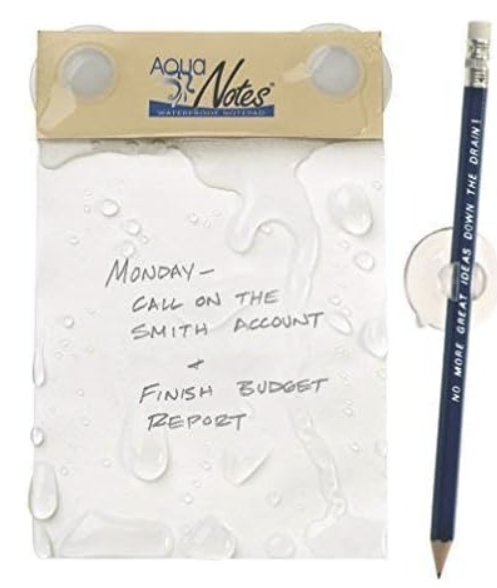 Aqua
Notes®
WATERPROOF NOTEPAD
MONDAY—
CALL ON THE
SMITH ACCOUNT
+
FINISH BUDGET
REPORT
NO MORE GREAT IDEAS DOWN THE DRAIN!